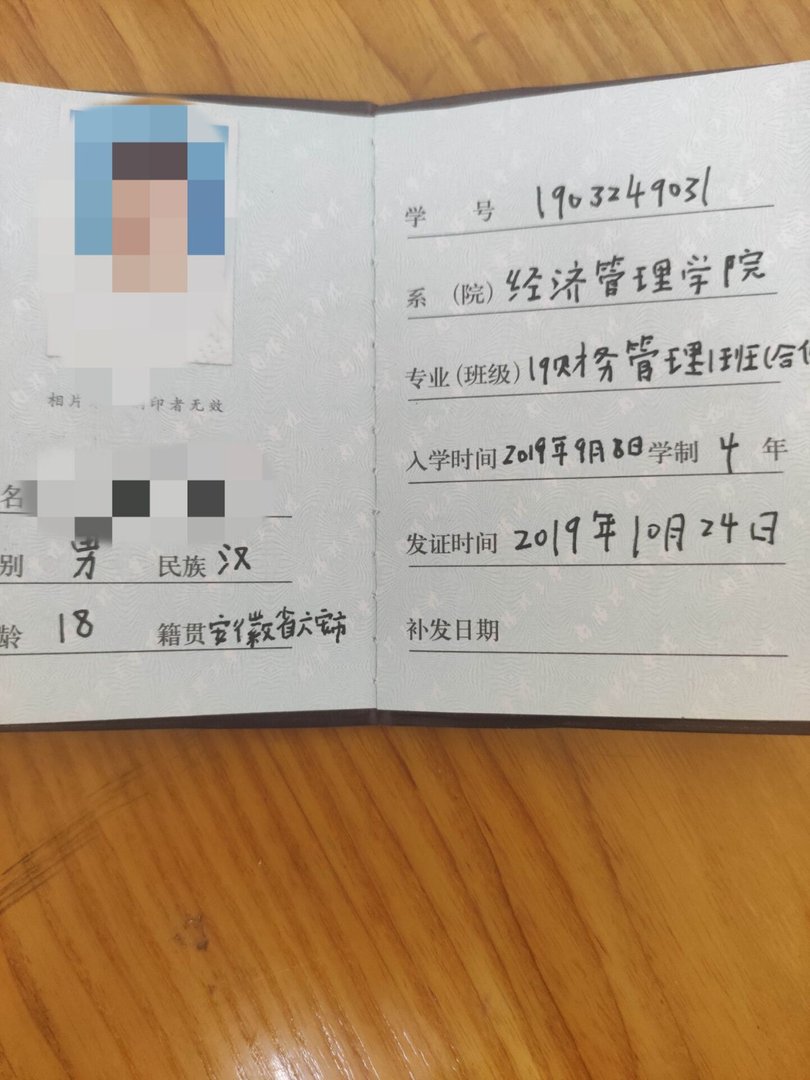 相片 印者无效
名
别 男 民族 汉
龄 18 籍贯 安徽省六安市
学 号 1903249031
系 (院) 经济管理学院
专业(班级) 19财务管理1班(合
入学时间 2019年9月8日 学制 4 年
发证时间 2019年10月24日
补发日期